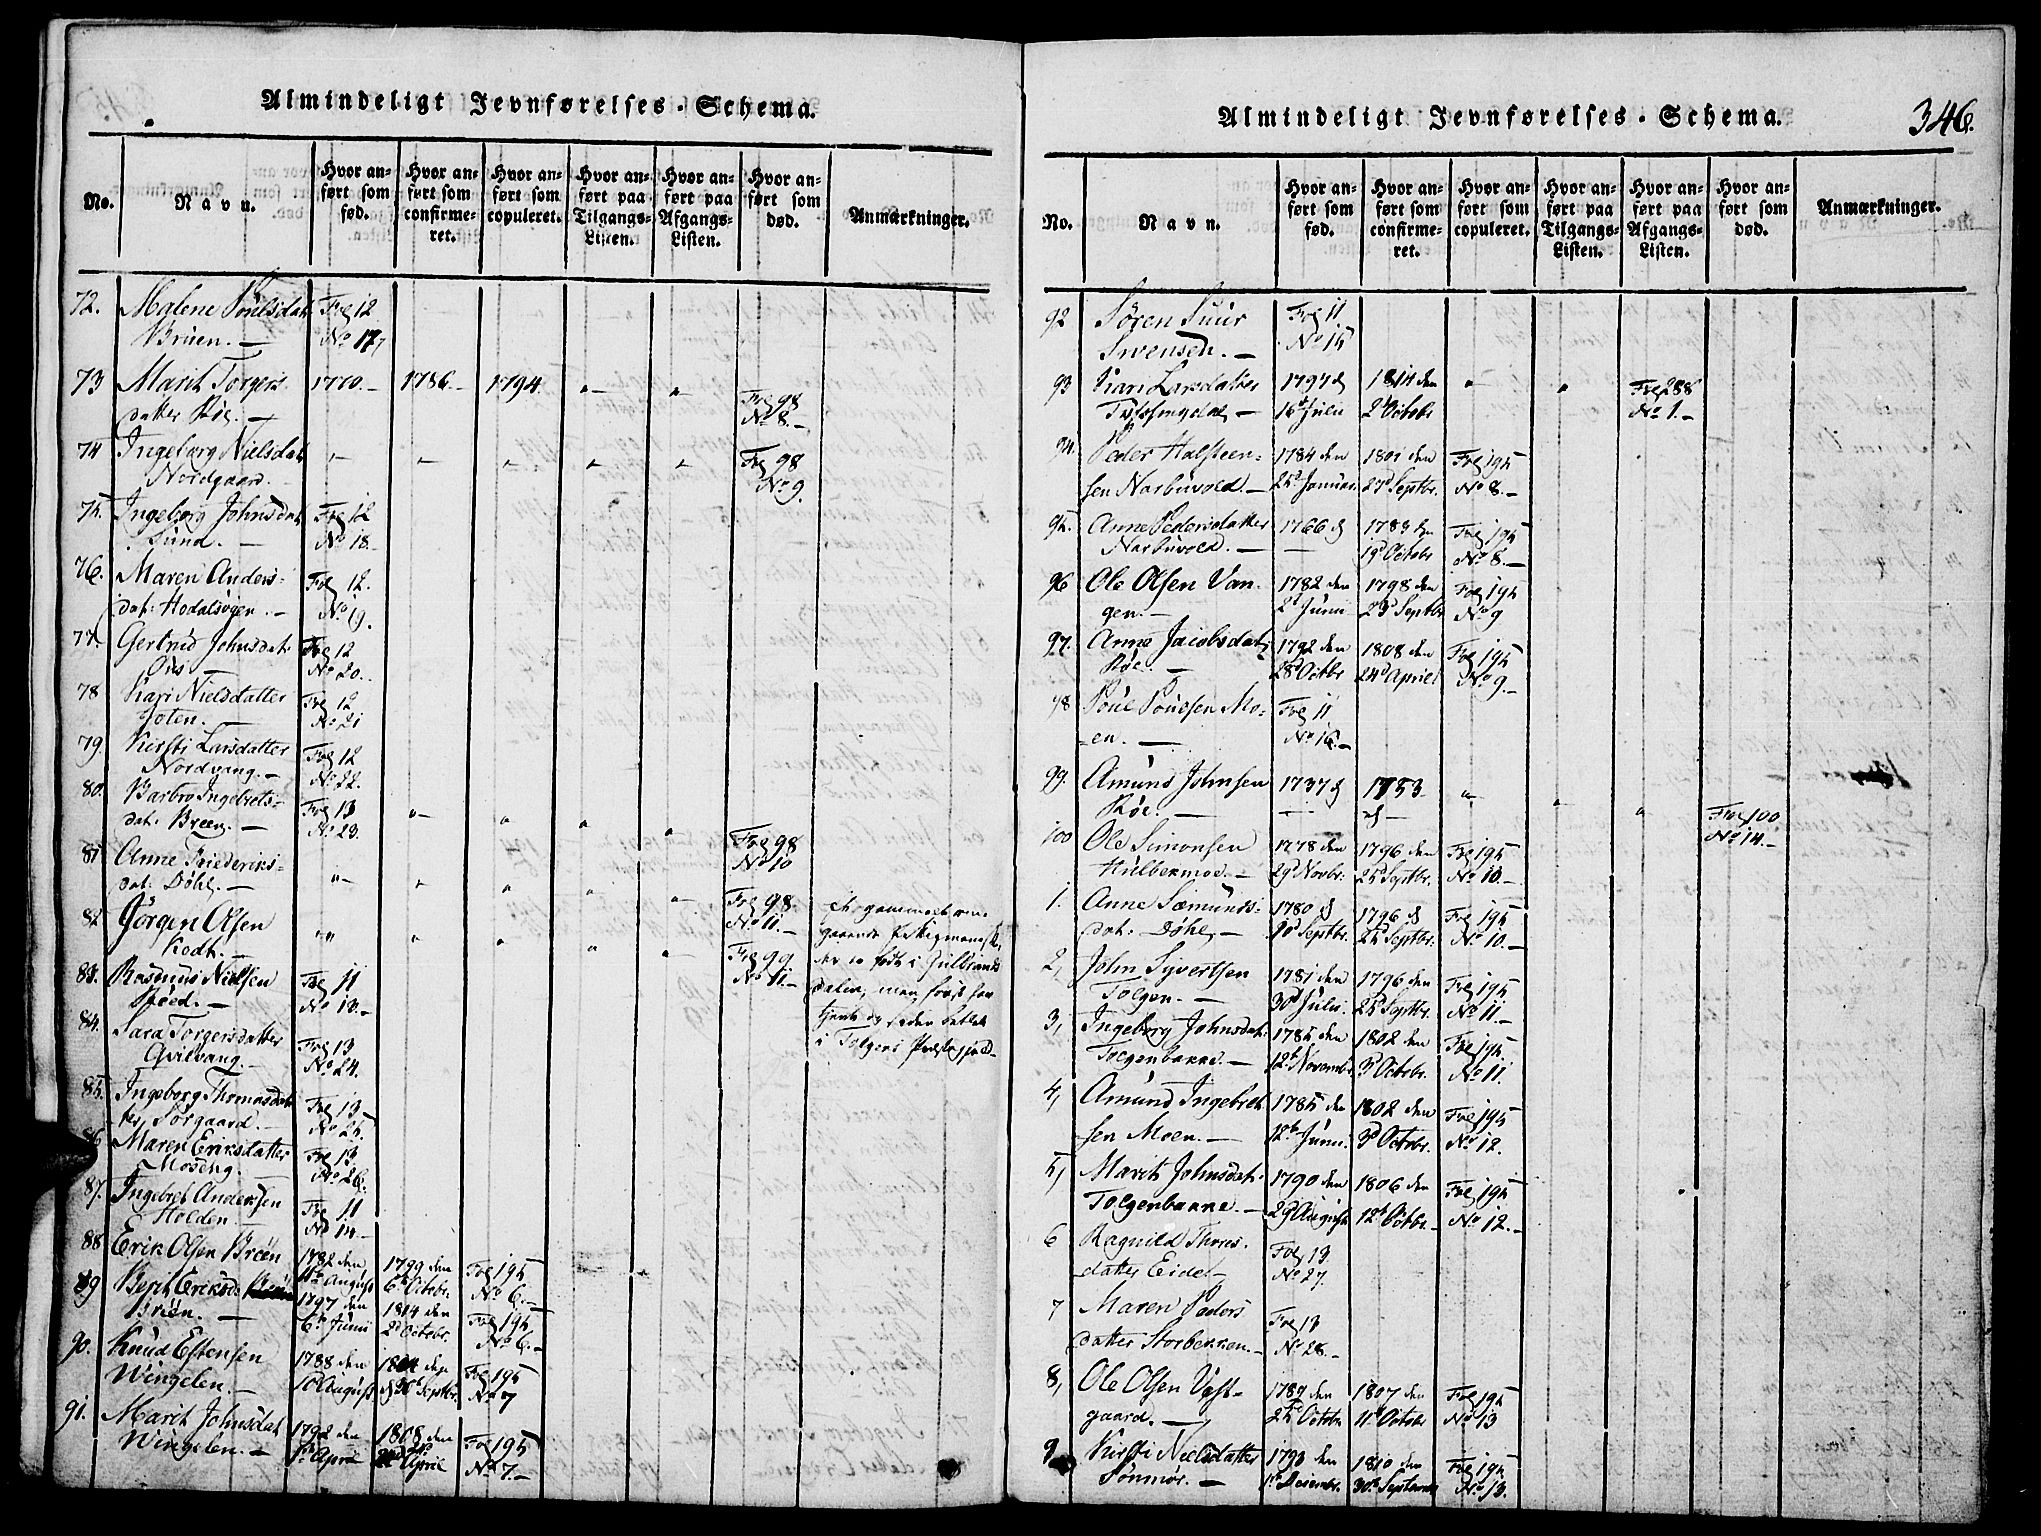 Almindeligt Jevnførelses-Schema.
No.
Navn.
Hvor anført som fød.
Hvor anført som confirmeret.
Hvor anført som copuleret.
Hvor anført paa Tilgangs-Listen.
Hvor anført paa Afgangs-Listen.
Hvor anført som død.
Anmærkninger.
72. Malene Poulsdat Fol 12
Brüen. — No 17
73 Marit Torgers 1770.— 1786.— 1794. Fol 98
datter Röe. — No 8.—
74 Ingeborg Nielsdat Fol 98
Nordgaard. No 9.
75. Ingeborg Johnsdat Fol 12
No 18.
76. Maren Anders- Fol 12.
dat: — No 19.
77. Gertrud Johnsdat: Fol 12
Öus — No 20.
78 Kari Nielsdatter Fol 12
Joten. — No 21
79. Kirsti Larsdatter Fol 12
Nordvang. — No 22.
80. Barbro Ingebrets- Fol 13
dat: Breen. — No 23. Fol 98
No 10
81. Anne Friederiks-
dat: Döhl. — Fol 98
No 11.—
82. Jörgen Olsen
Kodt. — Fol 99
No 11.—
et gammelt om-
gaaende
födt i Gulbrands
dalen, men
tjent og siden betlet
i Tolgens Præstegield—
83. Rasmus Nielsen Fol 11
No 13.—
84. Sara Torgersdatter Fol 13
Qvilvang. No 24.
85. Ingeborg Thomasdat Fol 13
ter Torgaard. — No 25.
86 Maren Eriksdatter Fol 13
Moseng. No 26.
87. Ingebret Andersen Fol 11
Holden No 14—
88 Erik Olsen Breen 1782 den 1799 den Fol 195
11te August 6te Octobr. No 6.—
89 Berit Eriksd. 1797 den 1814 den Fol 195
Breen. — 6te Junii 2d Octobr. No 6.—
90. Knud Estensen 1788 den 1804 den Fol 195
Wingelen. — 10 August Septbr. No 7
91. Marit Johnsdat 1792 den 1808 den Fol 195
Wingelen. — April April No 7.—
Almindeligt Jevnførelses-Schema.
346.
No.
Navn.
Hvor anført som fød.
Hvor anført som confirmeret.
Hvor anført som copuleret.
Hvor anført paa Tilgangs-Listen.
Hvor anført paa Afgangs-Listen.
Hvor anført som død.
Anmærkninger.
92 Sören Fol 11
Svensen. — No 15
93 Kari Larsdatter 1797 d 1814 den Fol 288
16d Julii 2d Octobr No 1.—
94. Peder Halsteen- 1784 den 1801 den Fol 195
sen Narbuvold.— 25d Januar. 27d Septbr. No 8.—
95. Anne Pedersdatter 1766 d 1783 den Fol 195
Narbuvold. — 19d Octobr No 8.—
96 Ole Olsen Van- 1782 den 1798 den Fol 195
gen.— 2d Junii 23d Septbr No 9
97. Anne Jacobsdat: 1792 den 1808 den Fol 195
Röe. — 28d Octbr 24d April No 9.—
98 Poul Poulsen Mo- Fol 11
en. — No 16.—
99. Amund Johnsen 1737 d 1753 Fol 100
Röe. — No 14.—
100 Ole Simonsen 1778 den 1796 den Fol 195
Hulbekmoe.— 29d Novbr. 25d Septbr. No 10.—
1. Anne Sæmunds- 1780 d 1796 d Fol 195
dat: Döhl — Septbr. 25d Septbr. No 10.—
2, John Syvertsen 1781 den 1796 den Fol 195
Tolgen. — 30d Julii. 25d Septbr. No 11.—
3, Ingeborg Johnsdat: 1785 den 1802 den Fol 195
Tolgenbakke. — 12te Novembr. 3d Octobr. No 11.
4, Amund Ingebret 1785 den 1802 den Fol 195
sen Moen. — 12te Junii. 3d Octobr. No 12.
5, Marit Johnsdat: 1790 den 1806 den Fol 195
Tolgenbakke. — 29 August 12te Octbr. No 12.—
6 Ragnild Thores- Fol 13
datter Eide.— No 27.
7 Maren Peders Fol 13
datter Storbekken.— No 28.—
8, Ole Olsen Vest- 1789 den 1807 den Fol 195
gaard. — 25d Octobr 11d Octobr No 13
9 Kirsti Nielsdatter 1793 den 1810 den Fol 195
— 1te Decembr. 30te Septembr No 13.